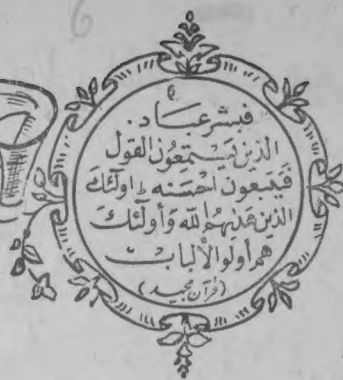 6
فبشر عباد .
الذين يستمعون القول
فيتبعون احسنه ط اولٰئك
الذين هدٰىهم الله وأولٰئك
هم أولو الألباب
(قرآن مجيد)